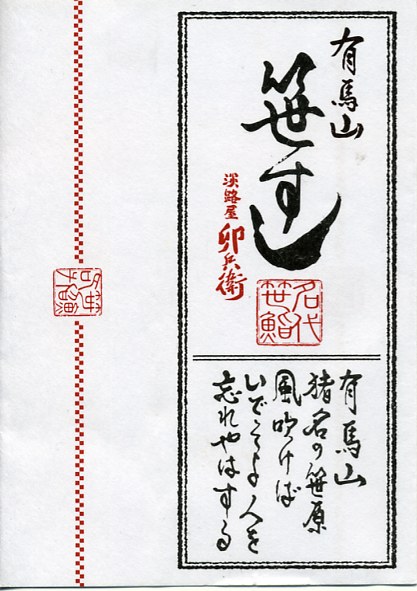 有馬山
笹すし
淡路屋
卯兵衛
名代
笹鮨
有馬山
猪名の笹原
風吹けば
いでそよ人を
忘れやはする